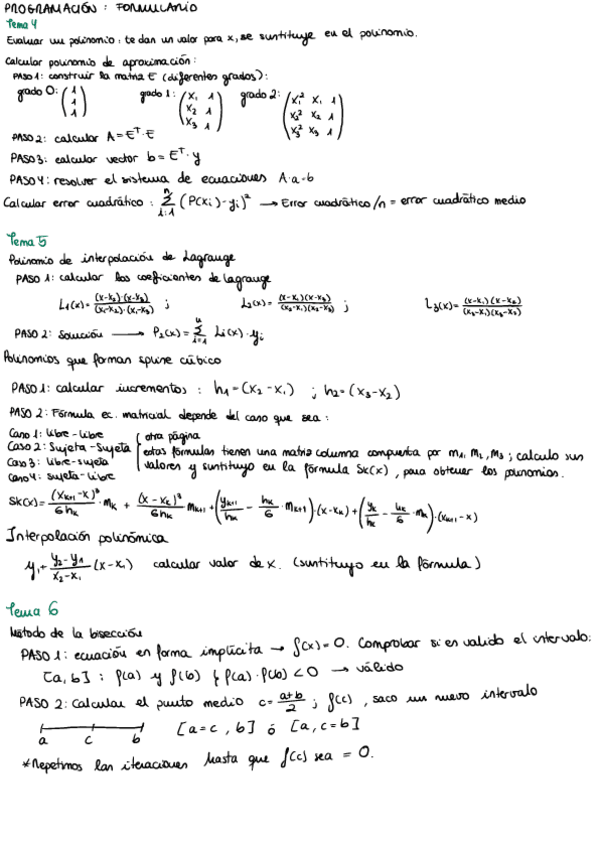 PROGRAMACIÓN : FORMULARIO
Tema 4
Evaluar un polinomio : te dan un valor para x, se sustituye en el polinomio.
Calcular polinomio de aproximación :
PASO 1 : construir la matriz E (diferentes grados) :
grado 0: (1 1 1) grado 1 : (x₁ 1 x₂ 1 x₃ 1) grado 2: (x₁² x₁ 1 x₂² x₂ 1 x₃² x₃ 1)
PASO 2 : calcular A = Eᵀ · E
PASO 3 : calcular vector b = Eᵀ · y
PASO 4 : resolver el sistema de ecuaciones A·a=b
Calcular error cuadrático : Σ i=1 n (P(xi) - yi)² → Error cuadrático/n = error cuadrático medio
Tema 5
Polinomio de interpolación de Lagrange
PASO 1 : calcular los coeficientes de lagrange
L₁(x) = (x-x₂)·(x-x₃)/(x₁-x₂)·(x₁-x₃) ; L₂(x) = (x-x₁)(x-x₃)/(x₂-x₁)(x₂-x₃) ; L₃(x) = (x-x₁)(x-x₂)/(x₃-x₁)(x₃-x₂)
PASO 2 : Solución → P₂(x) = Σ i=1 Li(x) · yi
Polinomios que forman spline cúbico
PASO 1 : calcular incrementos : h₁ = (x₂ - x₁) ; h₂ = (x₃ - x₂)
PASO 2 : Fórmula ec. matricial depende del caso que sea :
Caso 1 : libre - libre otra página
Caso 2 : Sujeta - Sujeta estas fórmulas tienen una matriz columna compuesta por m₁, m₂, m₃ ; calculo sus
Caso 3 : libre - sujeta valores y sustituyo en la fórmula Sk(x), para obtener los polinomios.
Caso 4 : sujeta - libre
Sk(x) = (xk+1 - x)³/6hk · mk + (x - xk)³/6hk mk+1 + (yk+1/hk - hk/6 · mk+1) · (x - xk) + (yk/hk - hk/6 · mk) · (xk+1 - x)
Interpolación polinómica
y₁ + y₂ - y₁/x₂ - x₁ (x - x₁) calcular valor de x. (sustituyo en la fórmula)
Tema 6
Método de la bisección
PASO 1 : ecuación en forma implícita → f(x) = 0. Comprobar si es valido el intervalo:
[a, b] : f(a) y f(b) f(a) · f(b) < 0 → válido
PASO 2 : Calcular el punto medio c = a+b/2 ; f(c) , saco un nuevo intervalo
a c b [a = c , b] ó [a, c = b]
*Repetimos las iteraciones hasta que f(c) sea = 0.